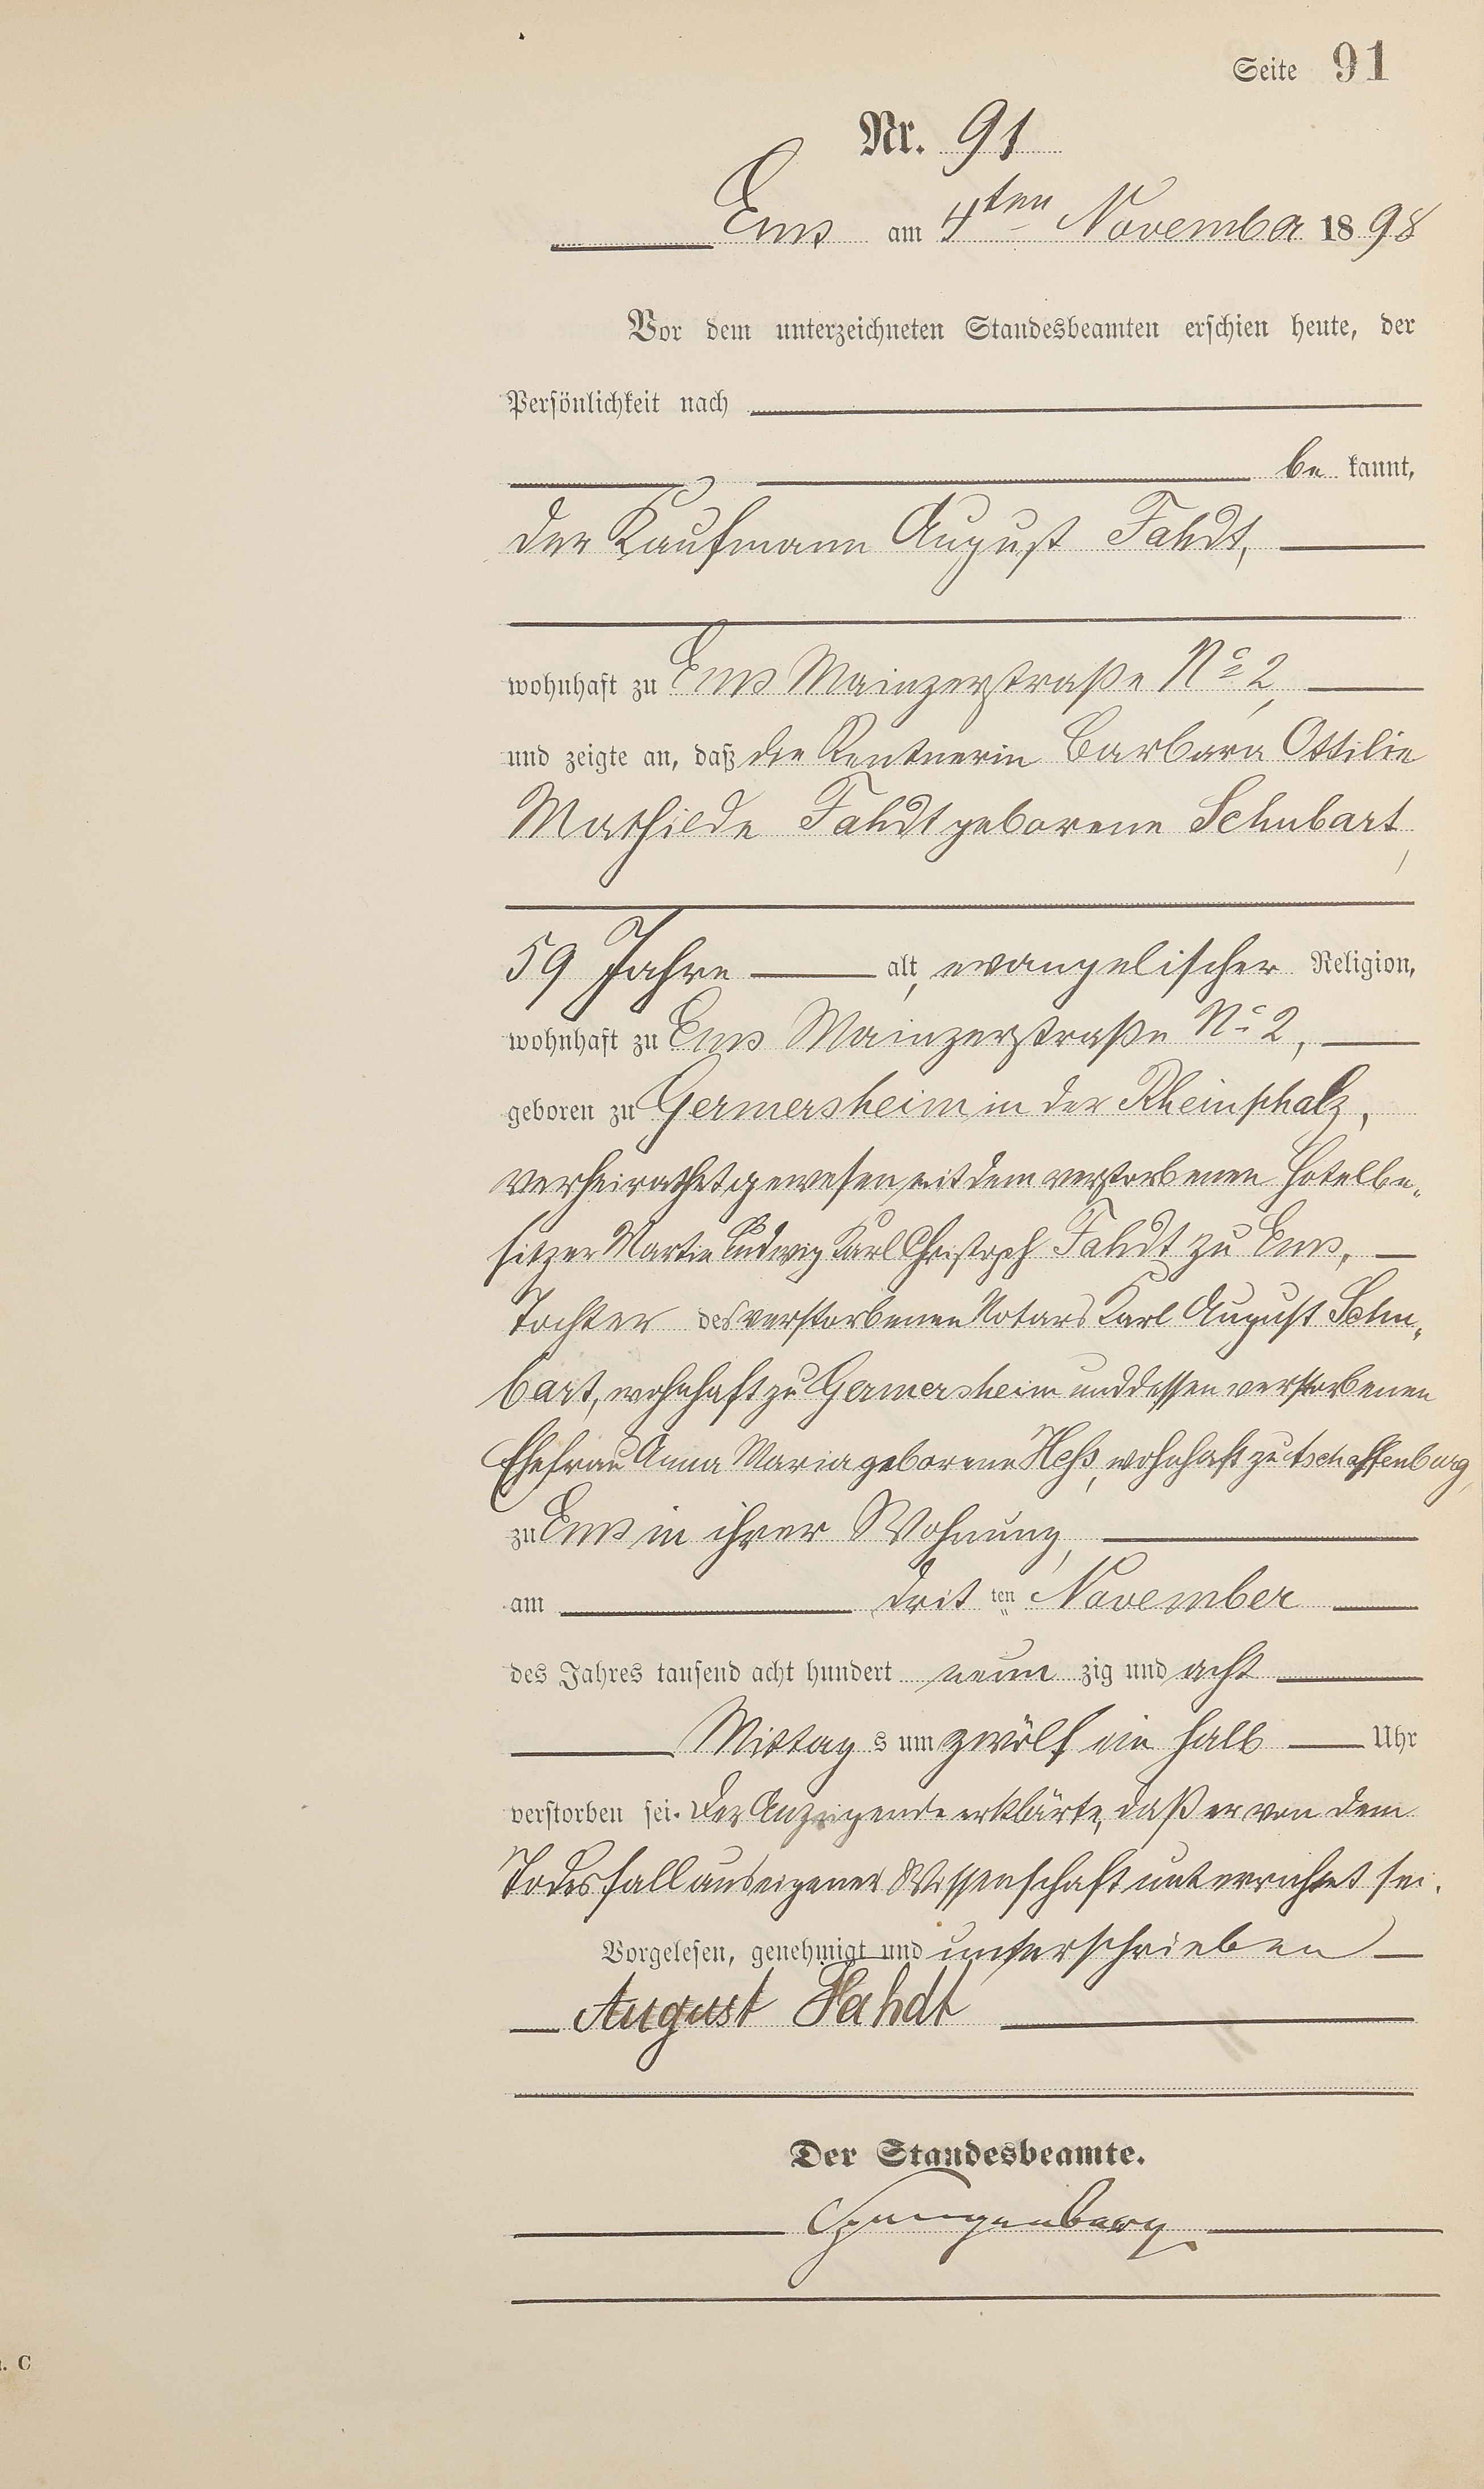 Seite 91
Nr. 91
Ems am 4ten November 1898
Vor dem unterzeichneten Standesbeamten erschien heute, der
Persönlichkeit nach
be kannt,
der Kaufmann August Fahdt,
wohnhaft zu Ems Mainzerstraße No 2,
und zeigte an, daß die Rentnerin Barbara Ottilie
Mathilde Fahdt geborene Schubart,
59 Jahre alt, evangelischer Religion,
wohnhaft zu Ems Mainzerstraße No 2,
geboren zu Germersheim in der Rheinphalz,
verheirathet gewesen mit dem verstorbenen Hotelbe„
sitzer Martin Ludwig Karl Christoph Fahdt zu Ems,
Tochter des verstorbenen Notars Karl August Schu„
bart, wohnhaft zu Germersheim und dessen verstorbenen
Ehefrau Anna Maria geborene Heß, wohnhaft zu Aschaffenburg,
zu Ems in ihrer Wohnung,
am drit ten November
des Jahres tausend acht hundert neun zig und acht
Mittag s um zwölf ein halb Uhr
verstorben sei. Der Anzeigende erklärte, daß er von dem
Todesfall aus eigener Wissenschaft unterrichtet sei.
Vorgelesen, genehmigt und unterschrieben
August Fahdt
Der Standesbeamte.
Spangenberg
. C